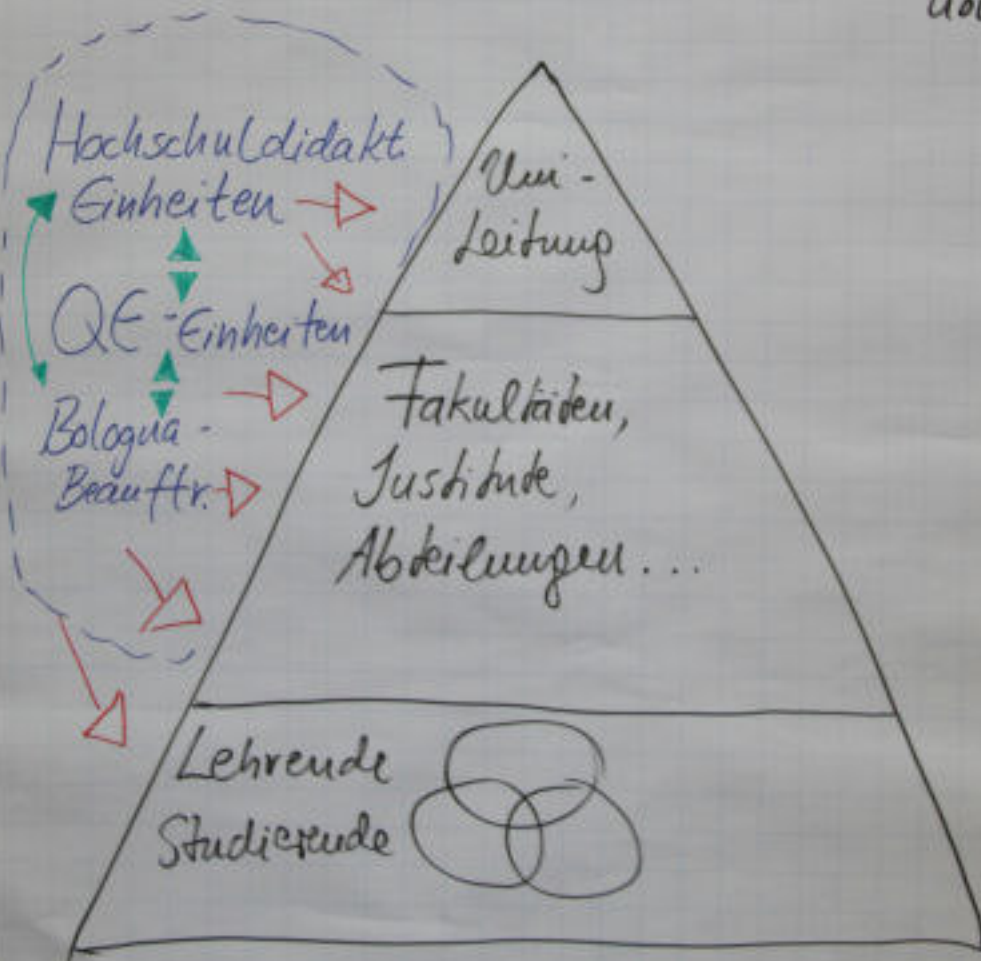 Hochschuldidakt.
Einheiten
QE-Einheiten
Bologna-
Beauftr.
Uni-
Leitung
Fakultäten,
Institute,
Abteilungen...
Lehrende
Studierende